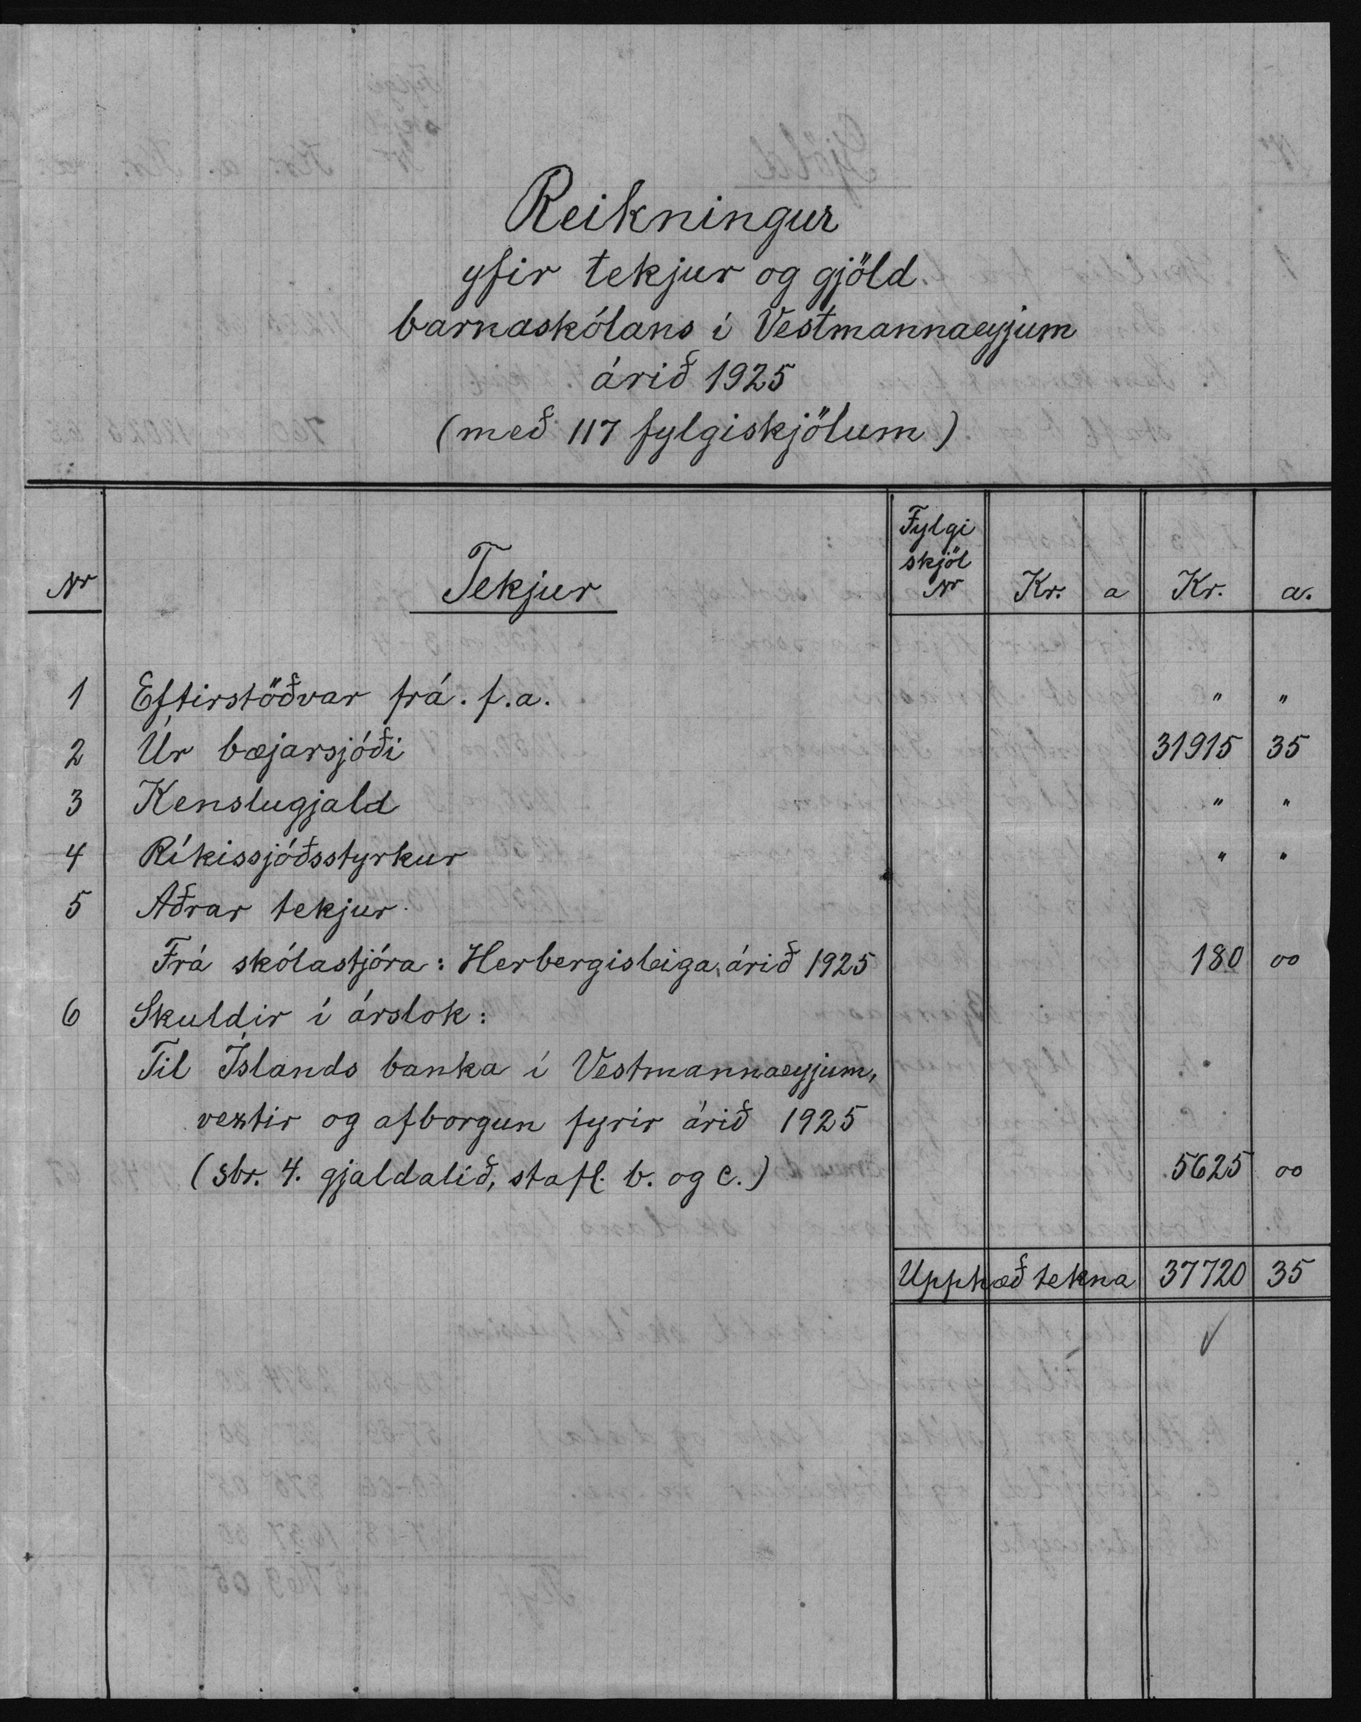 Reikningur
yfir tekjur og gjöld
barnaskólans í Vestmannaeyjum
árið 1925
(með 117 fylgiskjölum)
Nr Tekjur Fylgi skjöl Nr Kr. a Kr. a.
1 Eftirstöðvar frá f.a. " "
2 Úr bæjarsjóði 31915 35
3 Kenslugjald " "
4 Ríkissjóðsstyrkur " "
5 Aðrar tekjur.
Frá skólastjóra: Herbergisleiga, árið 1925 180 00
6 Skuldir í árslok:
Til Íslands banka í Vestmannaeyjum,
vextir og afborgun fyrir árið 1925
(sbr. 4. gjaldalið, stafl. b. og c.) 5625 00
Upphæð tekna 37720 35